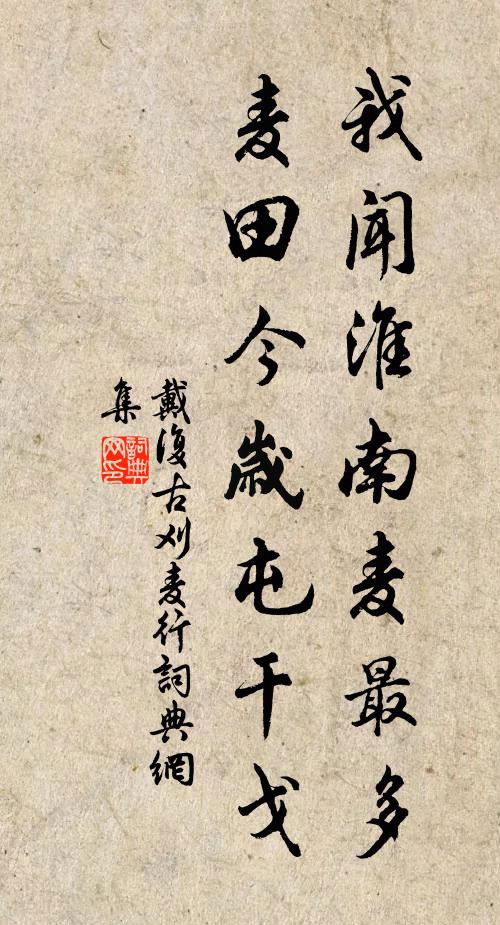 我闻淮南麦最多
麦田今歲屯干戈
戴復古刈麦行詞典網
集
詞典
网印